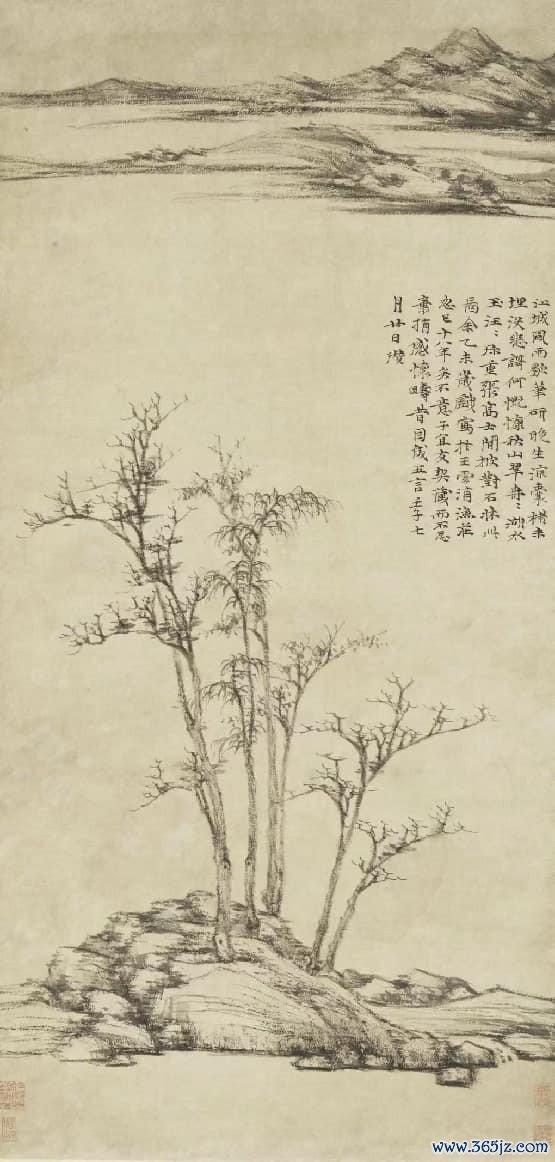 江城風雨歇筆研晚生涼囊楮未
埋没悲謌何慨慷秋山翠冉〻湖水
玉汪〻珎重張高士閒披對石牀此
圖余乙未歲戲寫於王雲浦漁莊
忽已十八年矣不意子宜友契藏而不忍
棄捐感懷疇昔因成五言壬子七
月廿日瓚
www.365jz.com